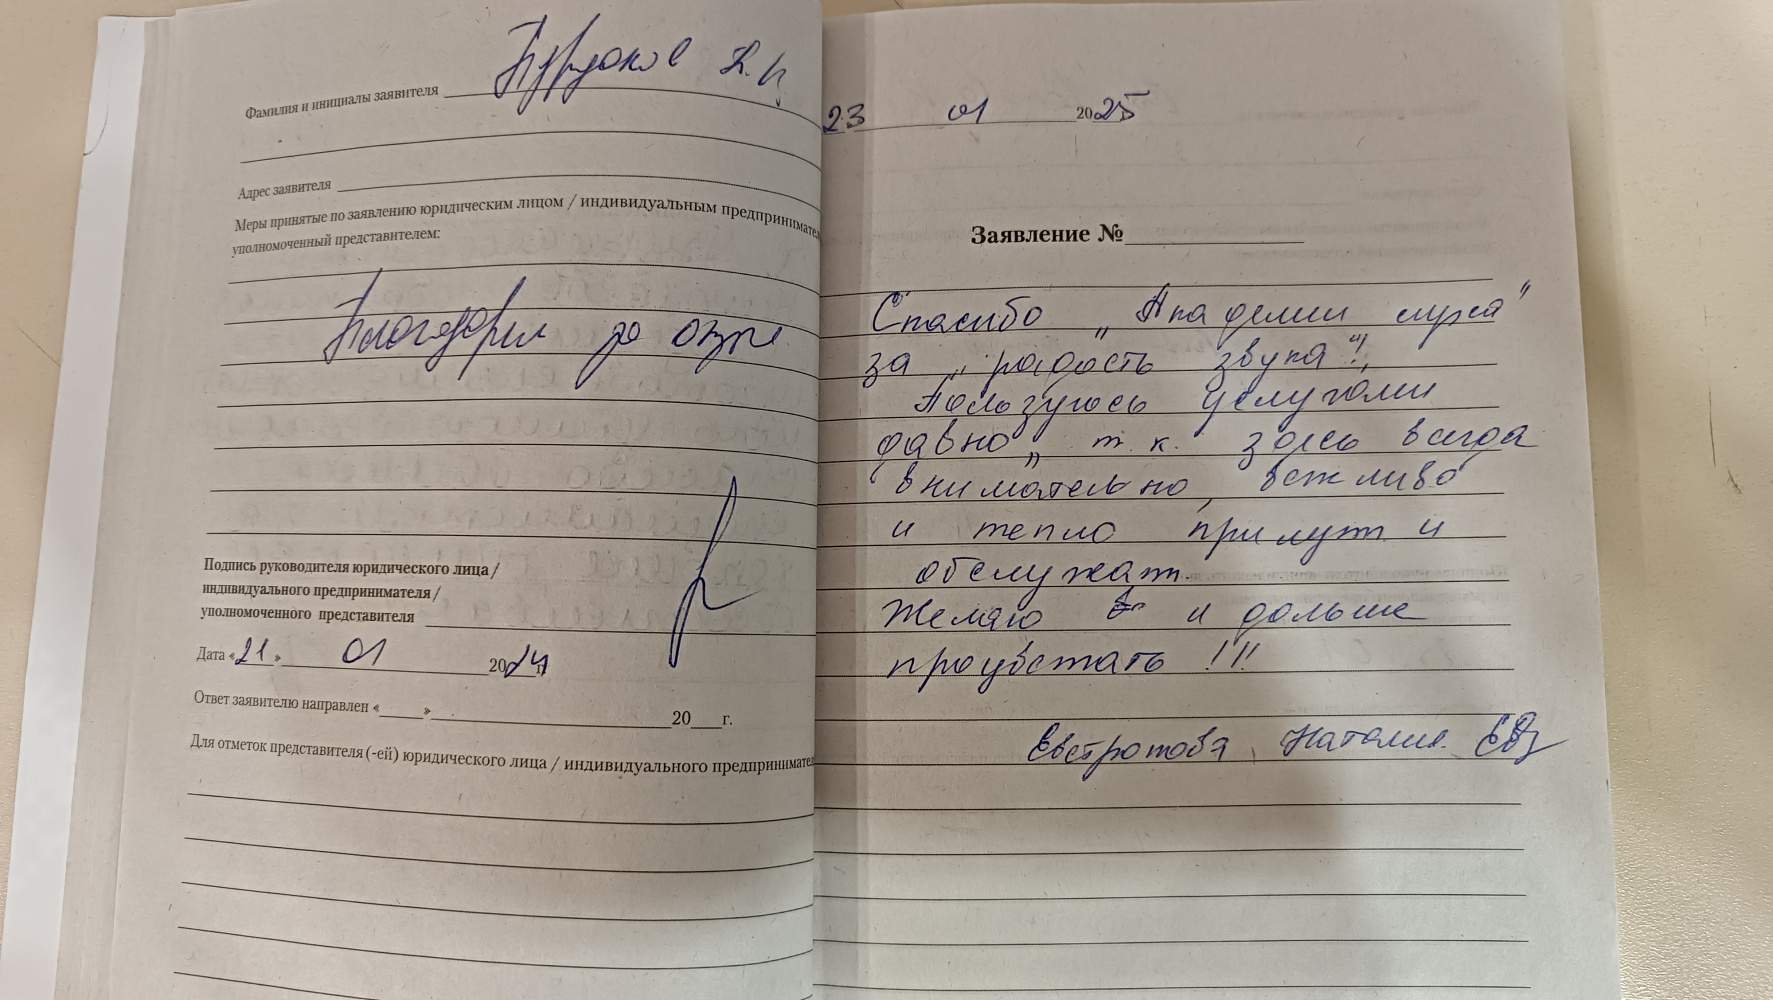 Фамилия и инициалы заявителя
Адрес заявителя
Меры принятые по заявлению юридическим лицом / индивидуальным предпринимател
уполномоченный представителем:
Благодарим за отзыв
Подпись руководителя юридического лица /
индивидуального предпринимателя /
уполномоченного представителя
Дата «21» 01 2024 г.
Ответ заявителю направлен «____»____ 20__г.
Для отметок представителя (-ей) юридического лица / индивидуального предпринимател
23 01 2025
Заявление №
Спасибо „Академии слуха"
за „радость звука"!,
Пользуюсь услугами
давно, т.к. здесь всегда
внимательно, вежливо
и тепло примут и
обслужат.
Желаю и дальше
процветать !!!
Евстратова Наталия.